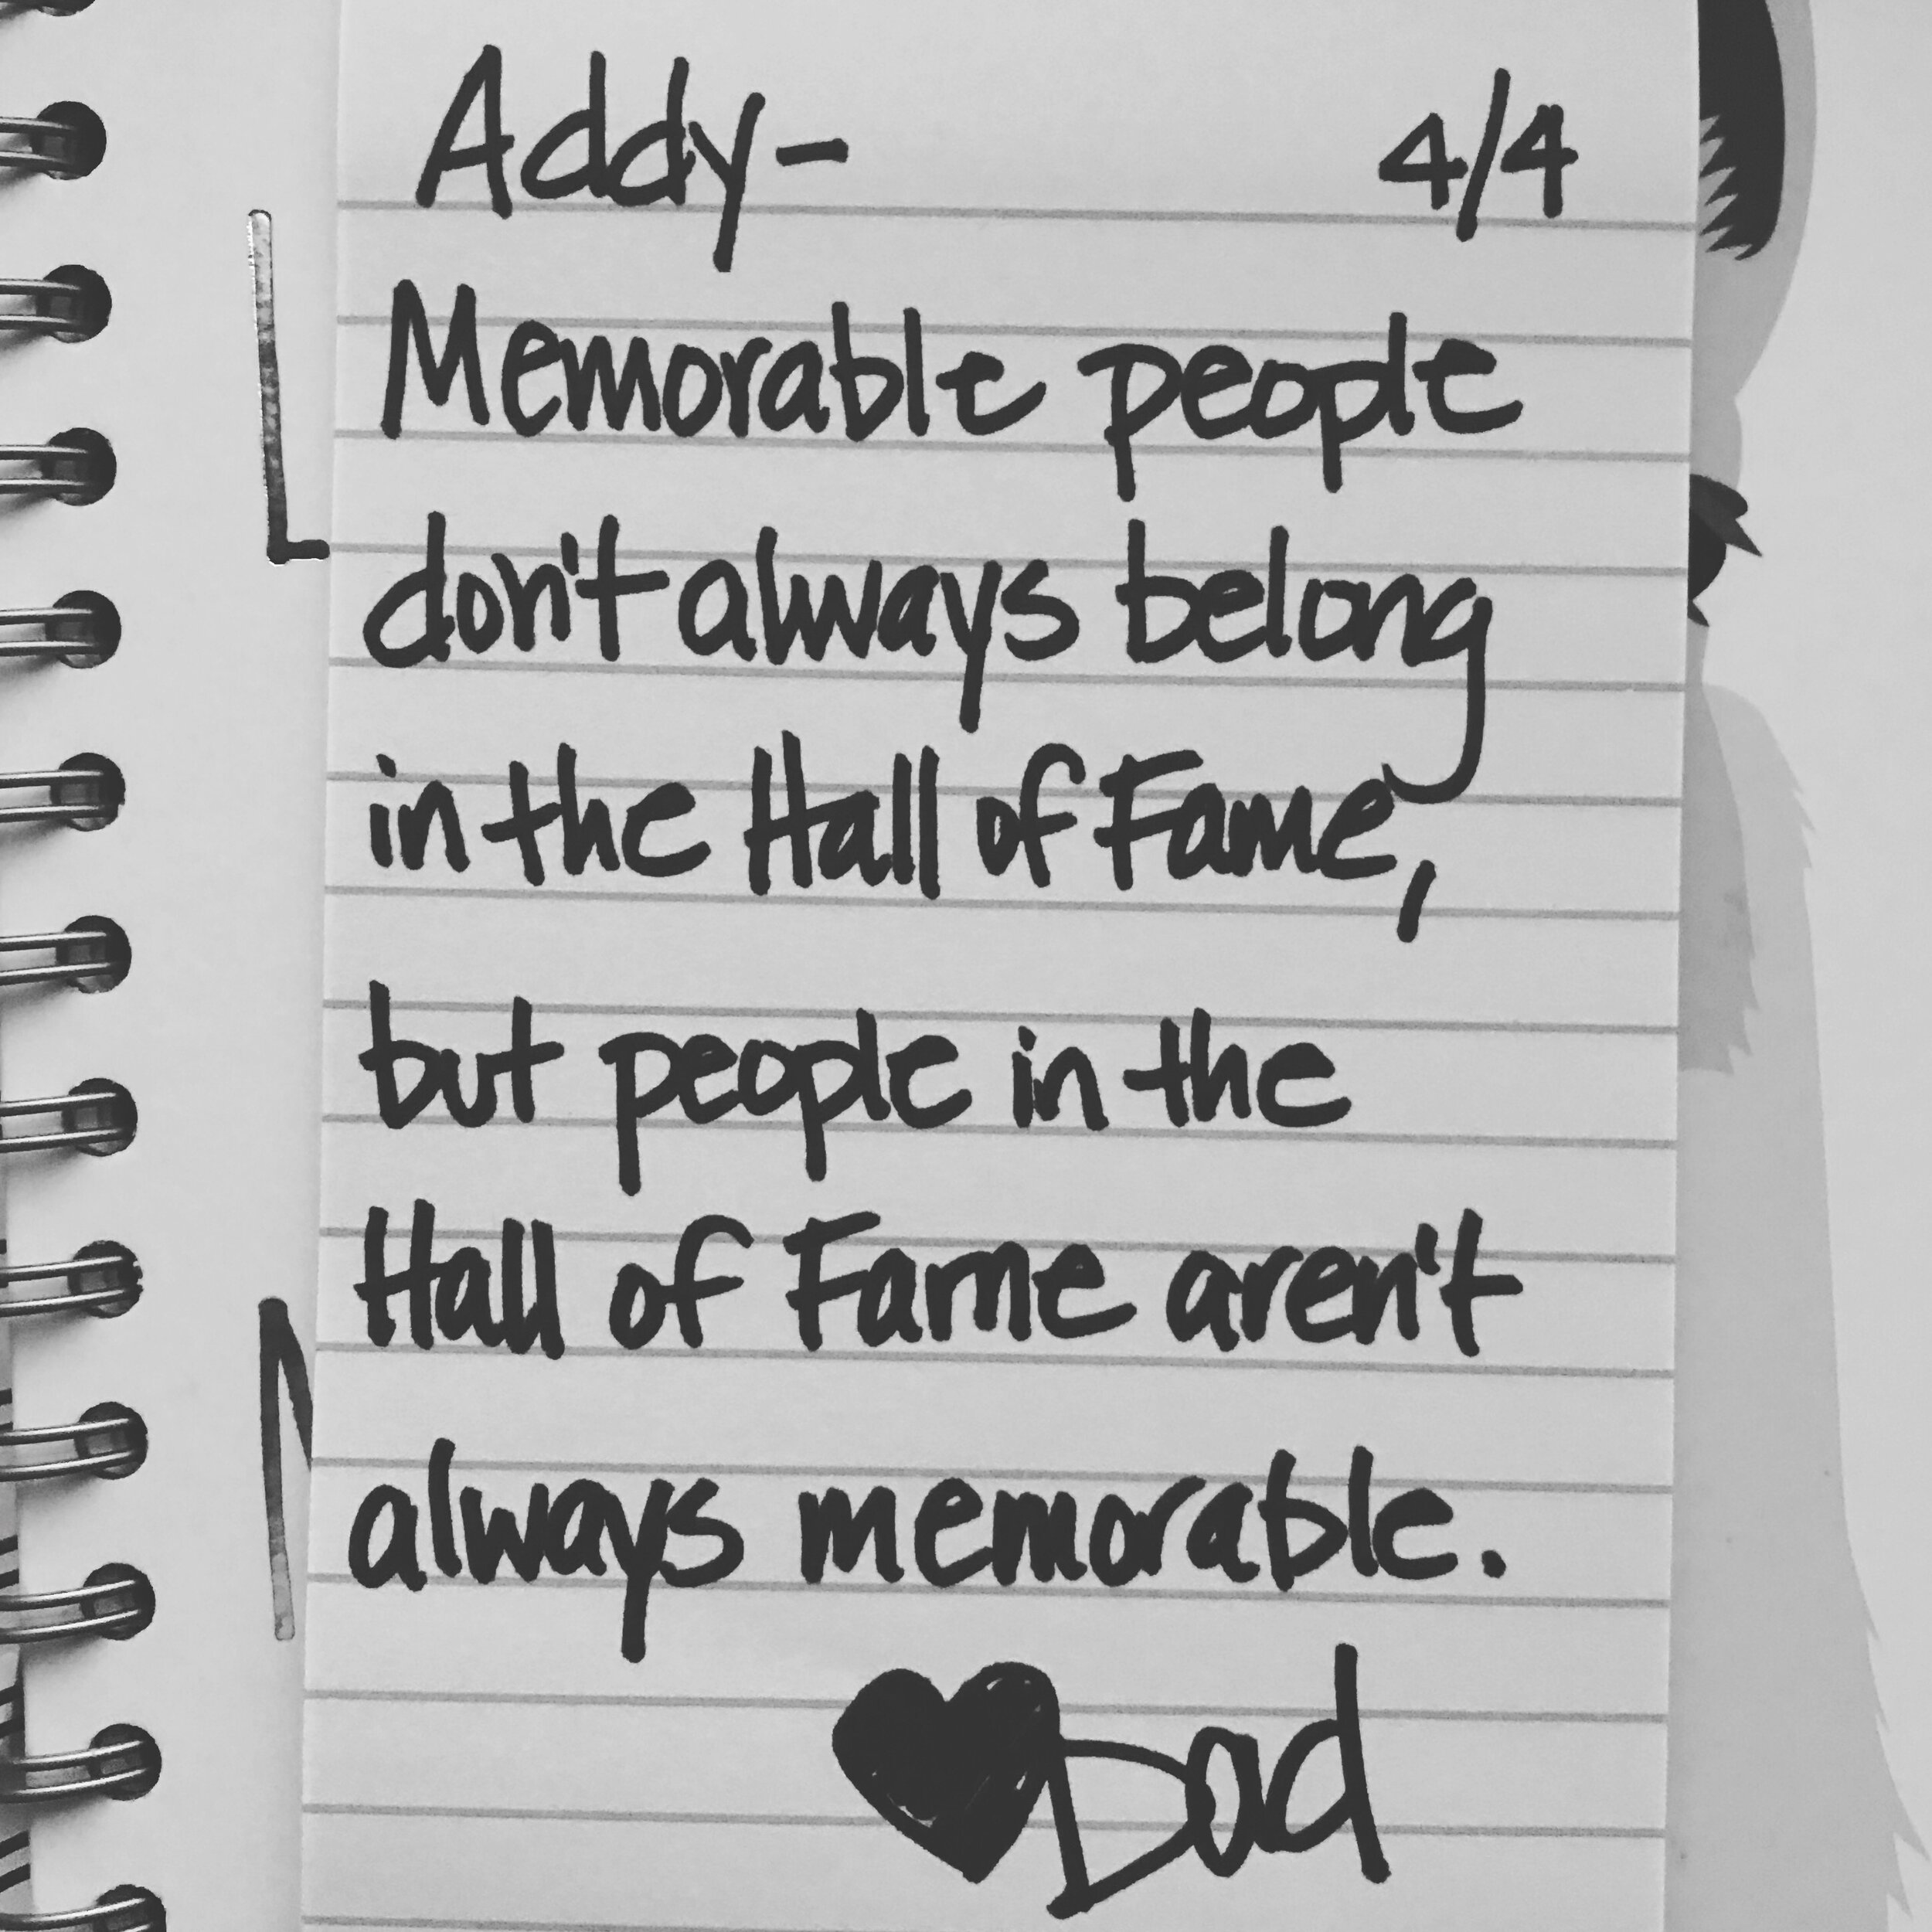 Addy- 4/4
Memorable people
don't always belong
in the Hall of Fame,
but people in the
Hall of Fame aren't
always memorable.
♥Dad